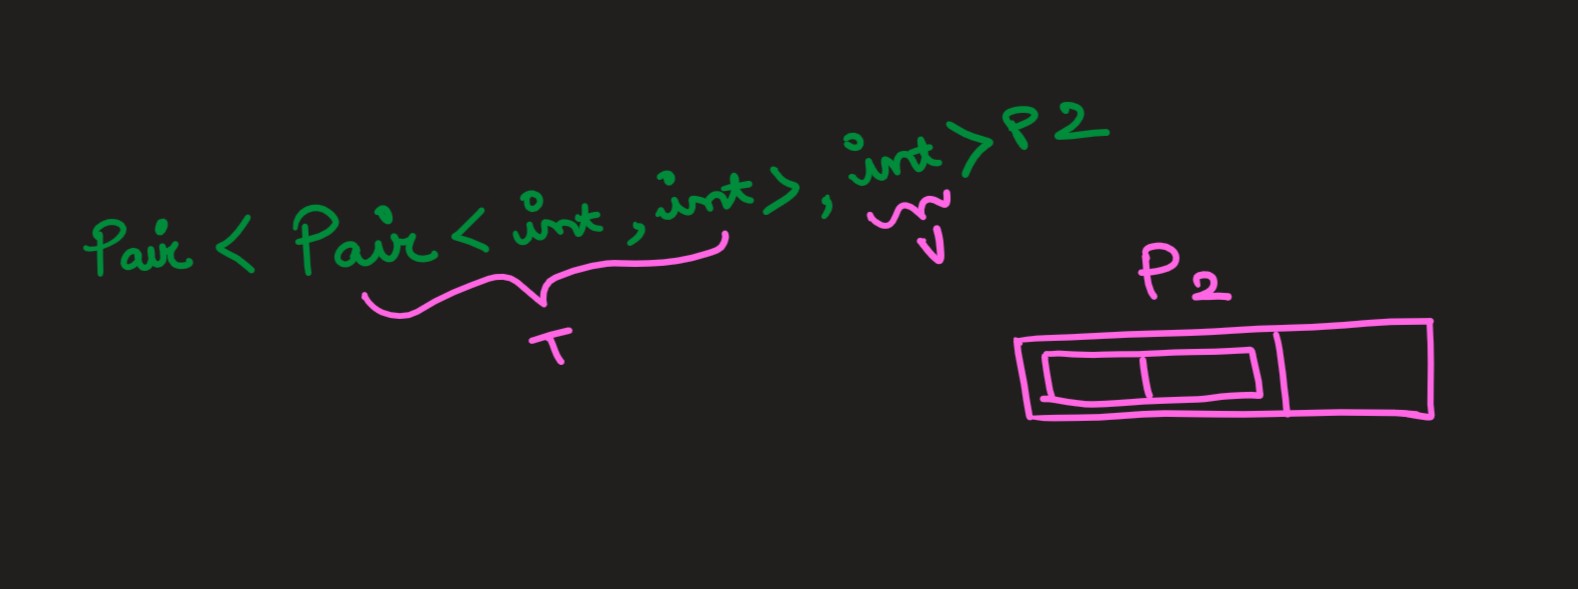 Pair < Pair < int , int > , int > P2
T
V
P2